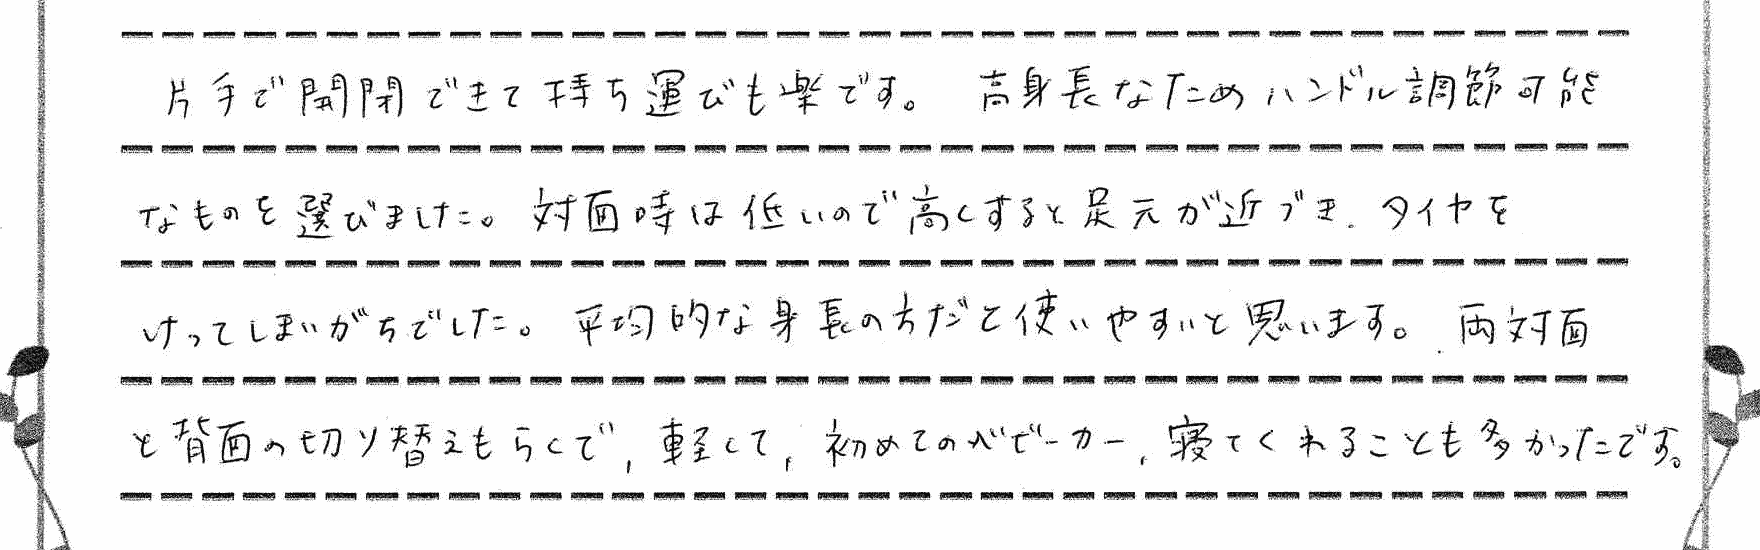 片手で開閉できて持ち運びも楽です。 高身長なためハンドル調節可能
なものを選びました。対面時は低いので高くすると足元が近づき、タイヤを
けってしまいがちでした。平均的な身長の方だと使いやすいと思います。両対面
と背面の切り替えもらくで、軽くて、初めてのベビーカー、寝てくれることも多かったです。